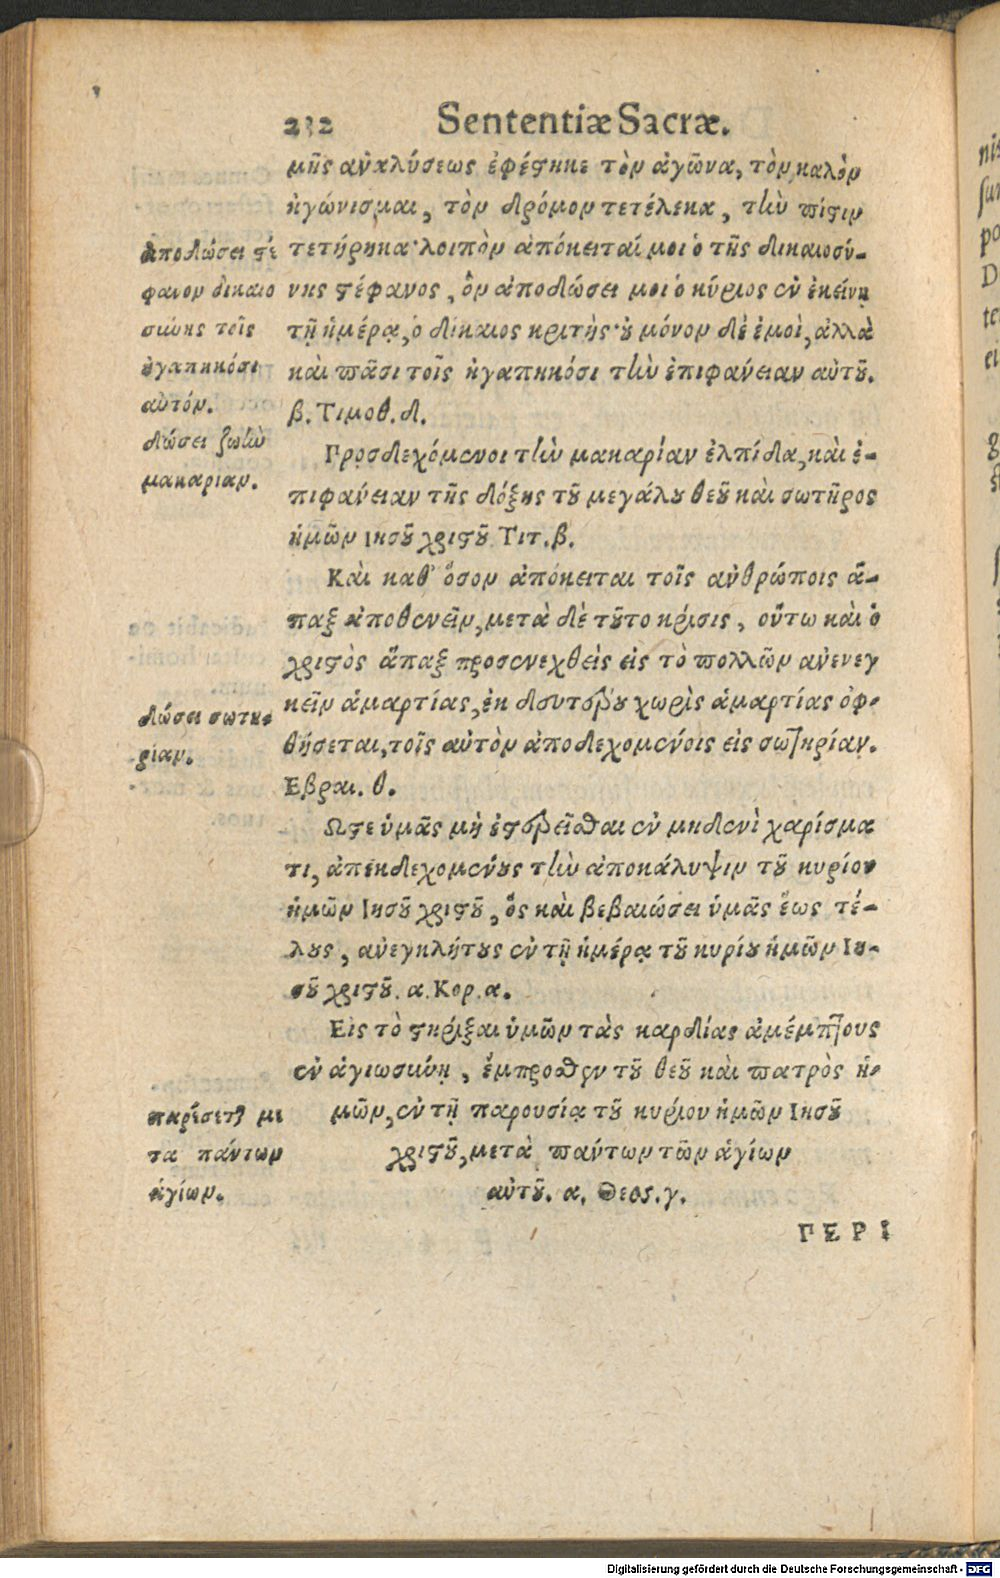 232 Sententiæ Sacræ.
μῆς ἀναλύσεως ἐφέστηκε τὸν ἀγῶνα, τὸν καλὸν
ἠγώνισμαι, τὸν δρόμον τετέλεκα, τὴν πίστιν
τετήρηκα· λοιπὸν ἀπόκειταί μοι ὁ τῆς δικαιοσύ-
νης στέφανος, ὃν ἀποδώσει μοι ὁ κύριος ἐν ἐκείνῃ
τῇ ἡμέρᾳ, ὁ δίκαιος κριτής· οὐ μόνον δὲ ἐμοὶ, ἀλλὰ
καὶ πᾶσι τοῖς ἠγαπηκόσι τὴν ἐπιφάνειαν αὐτοῦ.
β. Τιμοθ. δ.
ἀποδώσει στέ
φανον δικαιο
σύνης τοῖς
ἠγαπηκόσι
αὐτόν.
δώσει ζωὴν
μακαριαν.
Προσδεχόμενοι τὴν μακαρίαν ἐλπίδα, καὶ ἐ-
πιφάνειαν τῆς δόξης τοῦ μεγάλου θεοῦ καὶ σωτῆρος
ἡμῶν Ιησοῦ χριστοῦ. Τιτ. β.
Καὶ καθ' ὅσον ἀπόκειται τοῖς ἀνθρώποις ἅ-
παξ ἀποθενεῖν, μετὰ δὲ τοῦτο κρίσις, οὕτω καὶ ὁ
χριστὸς ἅπαξ προσενεχθεὶς εἰς τὸ πολλῶν ἀνενεγ
κεῖν ἁμαρτίας, ἐκ δευτέρου χωρὶς ἁμαρτίας ὀφ-
θήσεται, τοῖς αὐτὸν ἀποδεχομένοις εἰς σωτηρίαν.
Εβραι. θ.
δώσει σωτη-
ρίαν.
Ωστε ὑμᾶς μὴ ὑστερεῖσθαι ἐν μηδενὶ χαρίσμα
τι, ἀπεκδεχομένους τὴν ἀποκάλυψιν τοῦ κυρίου
ἡμῶν Ιησοῦ χριστοῦ, ὃς καὶ βεβαιώσει ὑμᾶς ἕως τέ-
λους, ἀνεγκλήτους ἐν τῇ ἡμέρᾳ τοῦ κυρίου ἡμῶν Ιη-
σοῦ χριστοῦ. α. Κορ. α.
Εἰς τὸ στηρίξαι ὑμῶν τὰς καρδίας ἀμέμπτους
ἐν ἁγιωσύνῃ, ἔμπροσθεν τοῦ θεοῦ καὶ πατρὸς ἡ-
μῶν, ἐν τῇ παρουσίᾳ τοῦ κυρίου ἡμῶν Ιησοῦ
χριστοῦ, μετὰ πάντων τῶν ἁγίων
αὐτοῦ. α. Θεσ. γ.
παρέσεται με
τα πάντων
ἁγίων.
ΠΕΡΙ
Digitalisierung gefördert durch die Deutsche Forschungsgemeinschaft - DFG